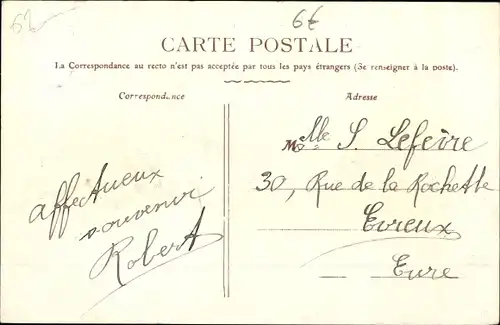 62
6€
CARTE POSTALE
La Correspondance au recto n'est pas acceptée par tous les pays étrangers (Se renseigner à la poste).
Correspondance
Adresse
affectueux
souvenir
Robert
M Mlle S. Lefèvre
30, Rue de la Rochette
Evreux
Eure